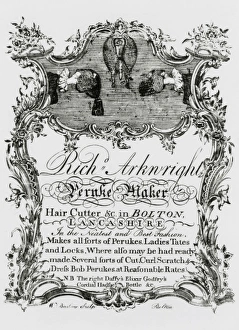 Rich Arkwright,
Peruke Maker
Hair Cutter &c in BOLTON,
LANCASHIRE
In the Neatest and Best Fashion.
Makes all sorts of Perukes, Ladies Tates
and Locks, Where also may be had ready
made, Several sorts of Cut, Curl, Scratch &
Dress Bob Perukes, at Reasonable Rates
NB The right Daffy's Elixir, Godfrey's
Cordial Bottle &c
Sculp. Bolton